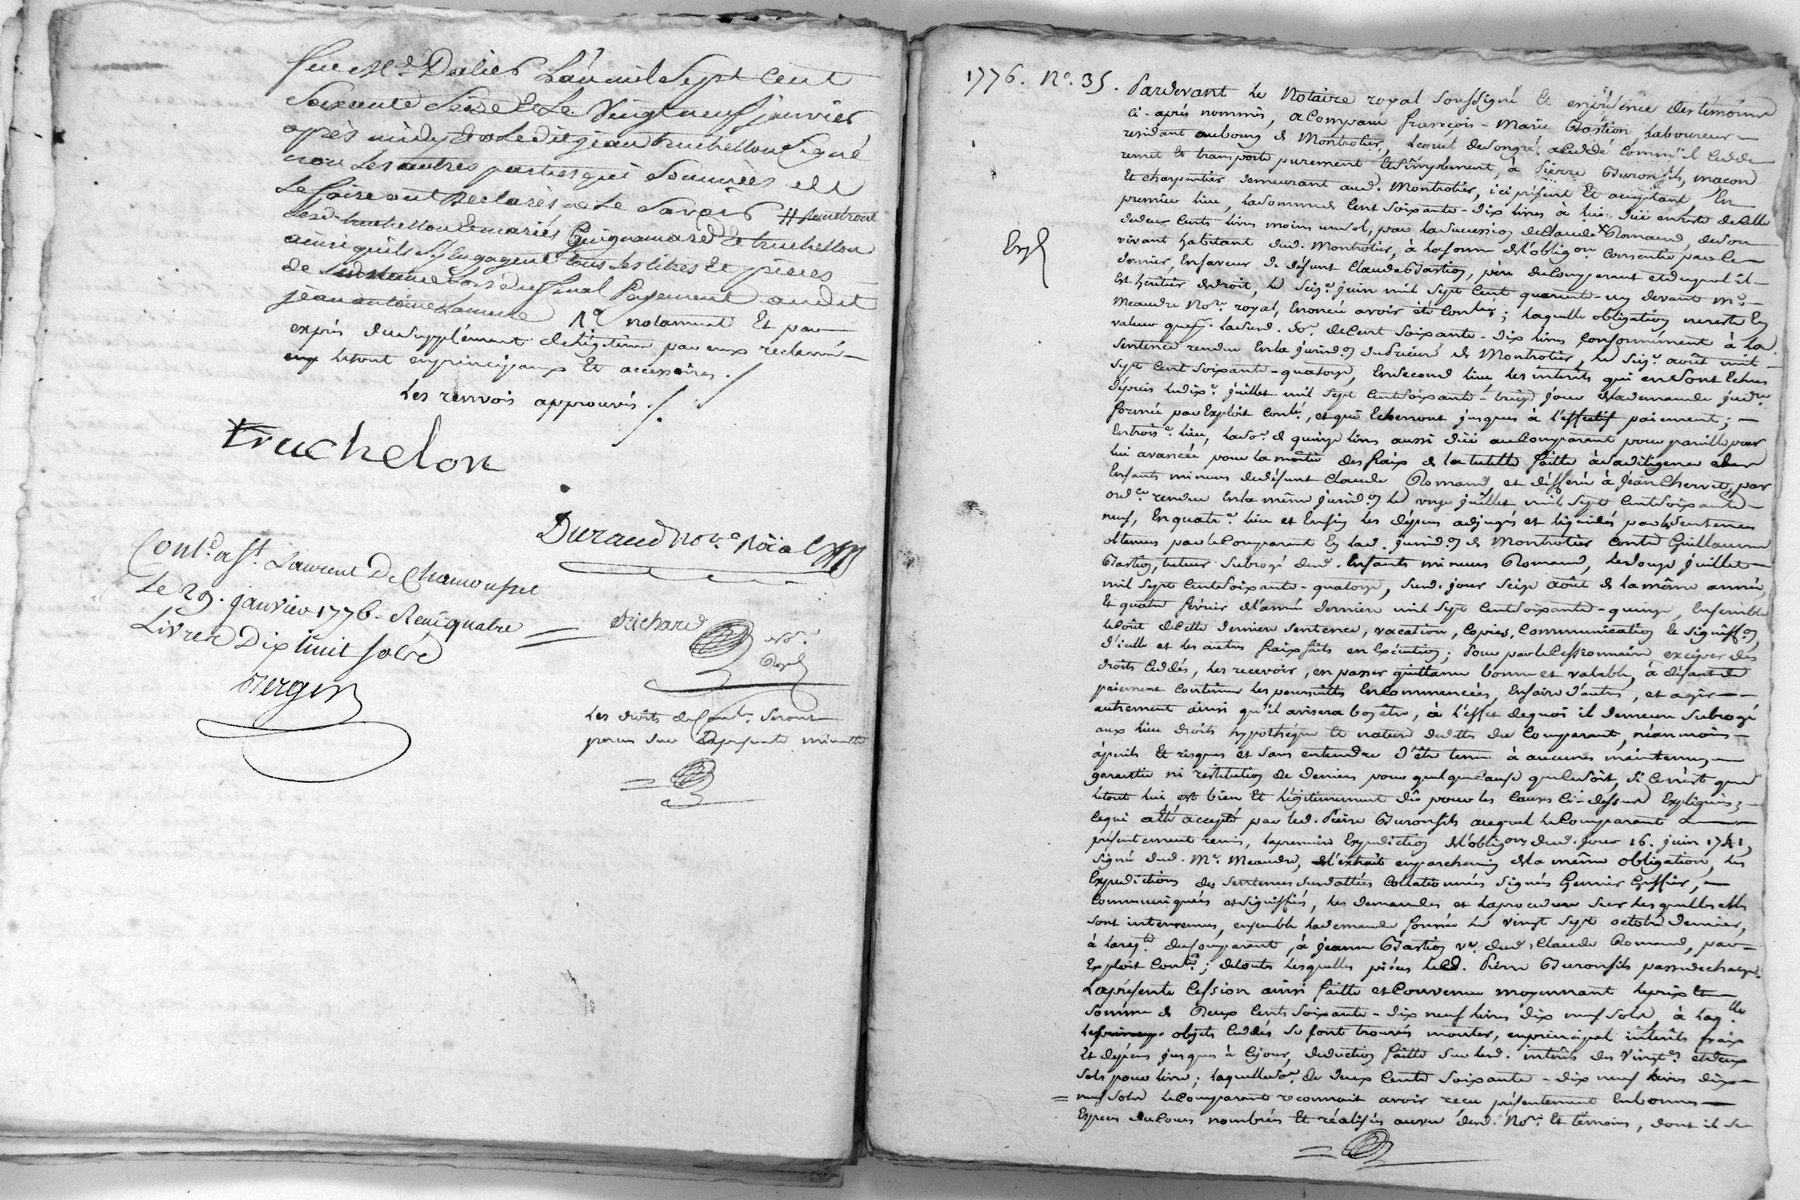 L'an mil Sept Cent
Soixante Seize & Le Vingt neuf janvier
après midy Et a Ledit jean truchellon Signé
non Les autres parties qui Sommées de
Le faire ont Declarés ne Le Savoir
ainsi qu'ils S'Engagent tous Les titres Et pièces
payement audit
jean antoine
notament Et par
exprès du Supplément de légitime par eux reclamé
en principaux Et accessoires ./.
Les renvois approuvés ./.
truchelon
Durand No.re Roial
Cont.é a St. Laurent De Chamousset
Le 29. janvier 1776. Reçu quatre
Livres Dix huit Sols
Berger
Richard
No.re
Royal
Les droits de Cont.le Seront
perçus Sur La présente minutte
1776. N.o 35. Pardevant Le Notaire royal Soussigné Et en présence des témoins
ci-après nommés, a Comparu françois-Marie Bastion Laboureur
residant au bourg de Montrotier, Lequel de Son gré a Cédé Comm' il Cedde
remet Et transporte purement Et Simplement, à Pierre Buronfils, maçon
Et charpentier demeurant aud. Montrotier, ici présent Et acceptant, En
premier Lieu, La Somme de Cent Soixante-dix Livres à Lui düe en reste de Celle
de deux Cents Livres moins un Sol, par La Succession de Claude Romand, de Son
Exp.é
vivant habitant dud. Montrotier, à La forme de L'oblig.on Consentie par Ce
dernier, En faveur de défunt Claude Bastion, père du Comparant et duquel il
Est héritier de droit, Le Seiz.e juin mil Sept Cent quarante-un devant M.e
Meandre No.re royal, Enoncée avoir été Contrôlée ; Laquelle obligation ne reste En
valeur que p.r Lasud. So.e de Cent Soixante-dix Livres Conformément à La
Sentence rendue En La jurid.on du Prieuré de Montrotier, Le Seiz.e août mil
Sept Cent Soixante-quatorze, En Second Lieu Les intérêts qui en Sont Echus
Depuis Le dix.e juillet mil Sept Cent Soixante-treize jour de La demande jud.re
formée par Exploit Cont.é, et qui Echerront jusques à L'effectif paiement ;
En trois.e Lieu, La So.e de quinze Livres aussi düe au Comparant pour pareille par
Lui avancée pour La moitié des fraix de La tutelle faitte à Sa diligence aux
Enfants mineurs dudéfunt Claude Romand, et défférée à Jean Chervet, par
ord.ce rendue En La même jurid.on Le onze juillet mil Sept Cent Soixante
neuf, En quatr.e Lieu et Enfin Les dépens adjugés et Liquidés par Les Sentences
obtenues par Le Comparant En Lad. jurid.on de Montrotier Contre Guillaume
Bastion, tuteur Subrogé dud. Enfants mineurs Romand, Les douze juillet
mil Sept Cent Soixante-quatorze, Sud. jour Seize août de La même année
Et quatre février de L'année dernière mil Sept Cent Soixante-quinze, Ensemble
Le Coût de Cette dernière Sentence, vacation, Copies, Communication & Signiff.on
d'icelle et Les autres fraix faits en Exécution ; Pour par Le Cessionnaire exciper des
droits Cédés, Les recevoir, en passer quittance bonne et valable, à défaut de
paiement Continuer Les poursuittes En Commencées, En faire d'autres, et agir
autrement ainsi qu'il avisera bon être, à L'effet de quoi il demeure Subrogé
aux Lieu droits hypothèque Et nature de dette du Comparant, néanmoins
à périls Et risques et Sans entendre d'être tenu à aucunes maintenue,
garantie ni restitution de deniers pour quelque Cause que Ce Soit, Si Ce n'est que
Le tout Lui est bien Et Légitimement dû pour Les Causes Ci-dessus Expliquées ;
Ce qui a été accepté par Led. Pierre Buronfils auquel Le Comparant a
présentement remis, La première Expédition de L'oblig.on dud. jour 16. juin 1741,
Signée dud. M.e Meandre, de L'extrait en parchemin de La même obligation, Les
Expéditions des Sentences Susdattées Collationnées Signées Greffier,
Communiquées et Signiffiées, Les demandes et La procédure Sur Lesquelles elles
Sont intervenues, ensemble La demande formée Le vingt Sept octobre dernier,
à La req.te du Comparant, à Jeanne Bastion v.e dud. Claude Romand, par
Exploit Cont.é ; de toutes Lesquelles pièces Led. Pierre Buronfils passe décharge.
La présente Cession ainsi faitte et Convenue moyennant Le prix Et
Somme de Deux Cents Soixante-dix neuf Livres dix neuf Sols, à Laq.lle
objets Cédés Se Sont trouvés monter, en principal intérêts fraix
Et dépens jusques à Ce jour, déduction faitte Sur Lesd. intérêts des vingt.es et deux
Sols pour Livre ; Laquelle So.e de deux Cents Soixante-dix neuf Livres dix
neuf Sols Le Comparant reconnoit avoir reçu présentement En bonnes
Espèces du Cours nombrées Et réalisées au vu desd. No.re Et témoins, dont il Se